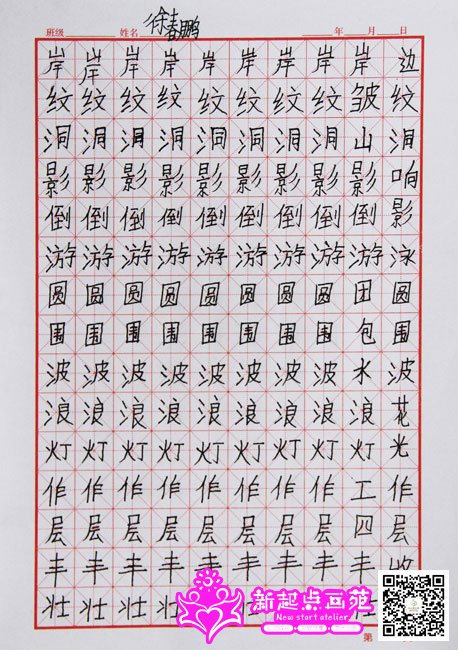 班级 姓名 徐春鹏 年 月 日
岸岸岸岸岸岸岸岸岸边
纹纹纹纹纹纹纹纹皱纹
洞洞洞洞洞洞洞洞山洞
影影影影影影影影影响
倒倒倒倒倒倒倒倒倒影
游游游游游游游游游泳
圆圆圆圆圆圆圆圆团圆
围围围围围围围围包围
波波波波波波波波水波
浪浪浪浪浪浪浪浪浪花
灯灯灯灯灯灯灯灯灯光
作作作作作作作作工作
层层层层层层层层四层
丰丰丰丰丰丰丰丰丰收
壮壮壮壮
新起点画苑
New start atelier
第